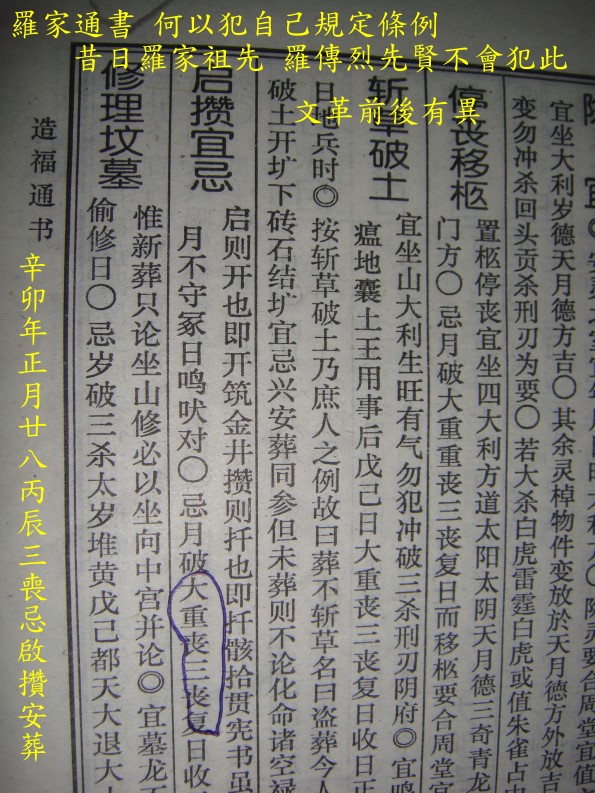 羅家通書 何以犯自己規定條例
昔日羅家祖先 羅傳烈先賢不會犯此
文革前後有異
宜坐大利岁德天月德方吉〇其余灵棹物件变放於天月德方外放吉
变勿冲杀回头贡杀刑刃为要〇若大杀白虎雷霆白虎或值朱雀占中
停丧移柩
置柩停丧宜坐四大利方道太阳太阴天月德三奇青龙
门方〇忌月破大重重丧三丧复日而移柩要合周堂
斩草破土
宜坐山大利生旺有气勿犯冲破三杀刑刃阴府〇宜鸣
瘟地囊土王用事后戊己日大重丧三丧复日收日正
日地兵时◎按斩草破土乃庶人之例故曰葬不斩草名曰盗葬今人
破土开圹下砖石结圹宜忌兴安葬同参但未葬则不论化命诸空禄
启攒宜忌
启则开也即开筑金井攒则扦也即扦骸拾贯宪书虽
月不守冢日鸣吠对〇忌月破大重丧三丧复日收
修理坟墓
惟新葬只论坐山修必以坐向中宫并论◎宜墓龙
偷修日〇忌岁破三杀太岁堆黄戊己都天大退大
造福通书
辛卯年正月廿八丙辰三喪忌啟攢安葬